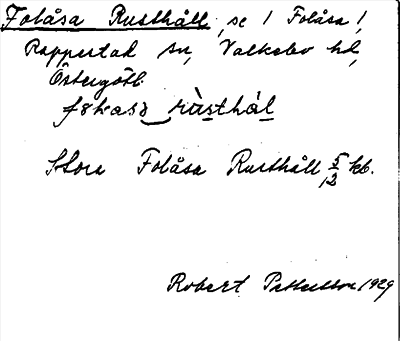 Folåsa Rusthåll, se / Folåsa /,
Rappestad sn, Valkebo hd,
Östergötl.
rùsthål
Stora Folåsa Rusthåll 5/12 kb.
Robert Pettersson 1929